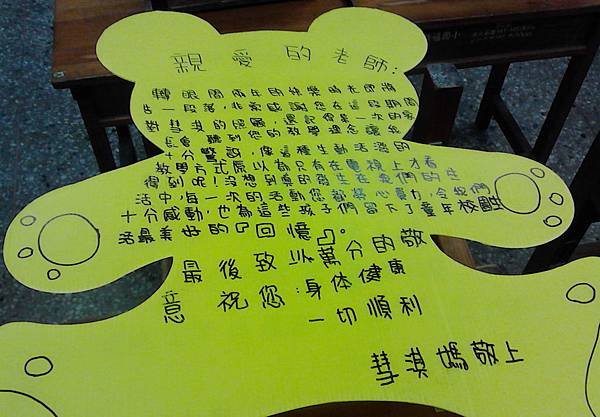 親愛的老師:
轉眼間兩年的快樂時光即將
告一段落,非常感謝您在這段期間
對彗淇的照顧,還記得第一次的家
長會,聽到您的教學理念讓我
十分驚訝,像這種生動活潑的
教學方式原以為只有在電視上才看
得到呢!沒想到真的發生在我們的生
活中,每一次的活動您都盡心盡力,令我們
十分感動,也為這些孩子們留下了童年校園生
活最美好的回憶。
最後致以萬分的敬
意 祝您:身体健康
一切順利
彗淇媽敬上